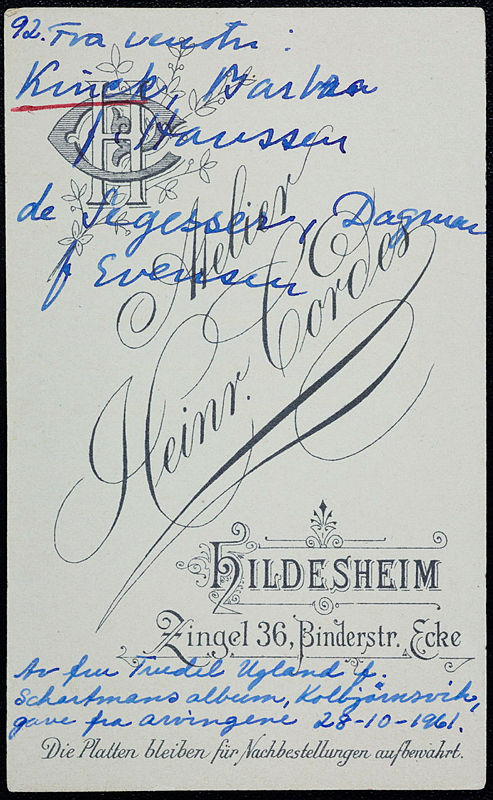 92. Fra venstre:
Kinck, Barbra
f. Hanssen
de Segesser, Dagmar
f Evensen
CH
Atelier
Heinr. Cordes
HILDESHEIM
Zingel 36, Binderstr. Ecke
Av fru Trudel Ugland f.
Schartmans album, Kolbjörnsvik,
gave fra arvingene 28-10-1961.
Die Platten bleiben für Nachbestellungen aufbewahrt.